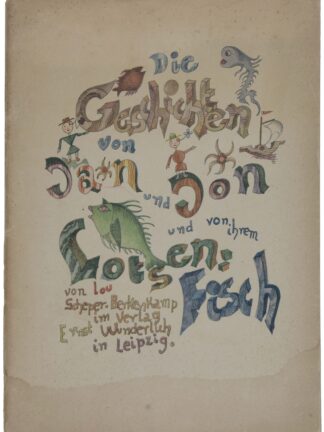 Die
Geschichten
von
Jan und Jon
und von ihrem
Lotsen:
Fisch
von Lou
Scheper-Berkenkamp
im Verlag
Ernst Wunderlich
in Leipzig.